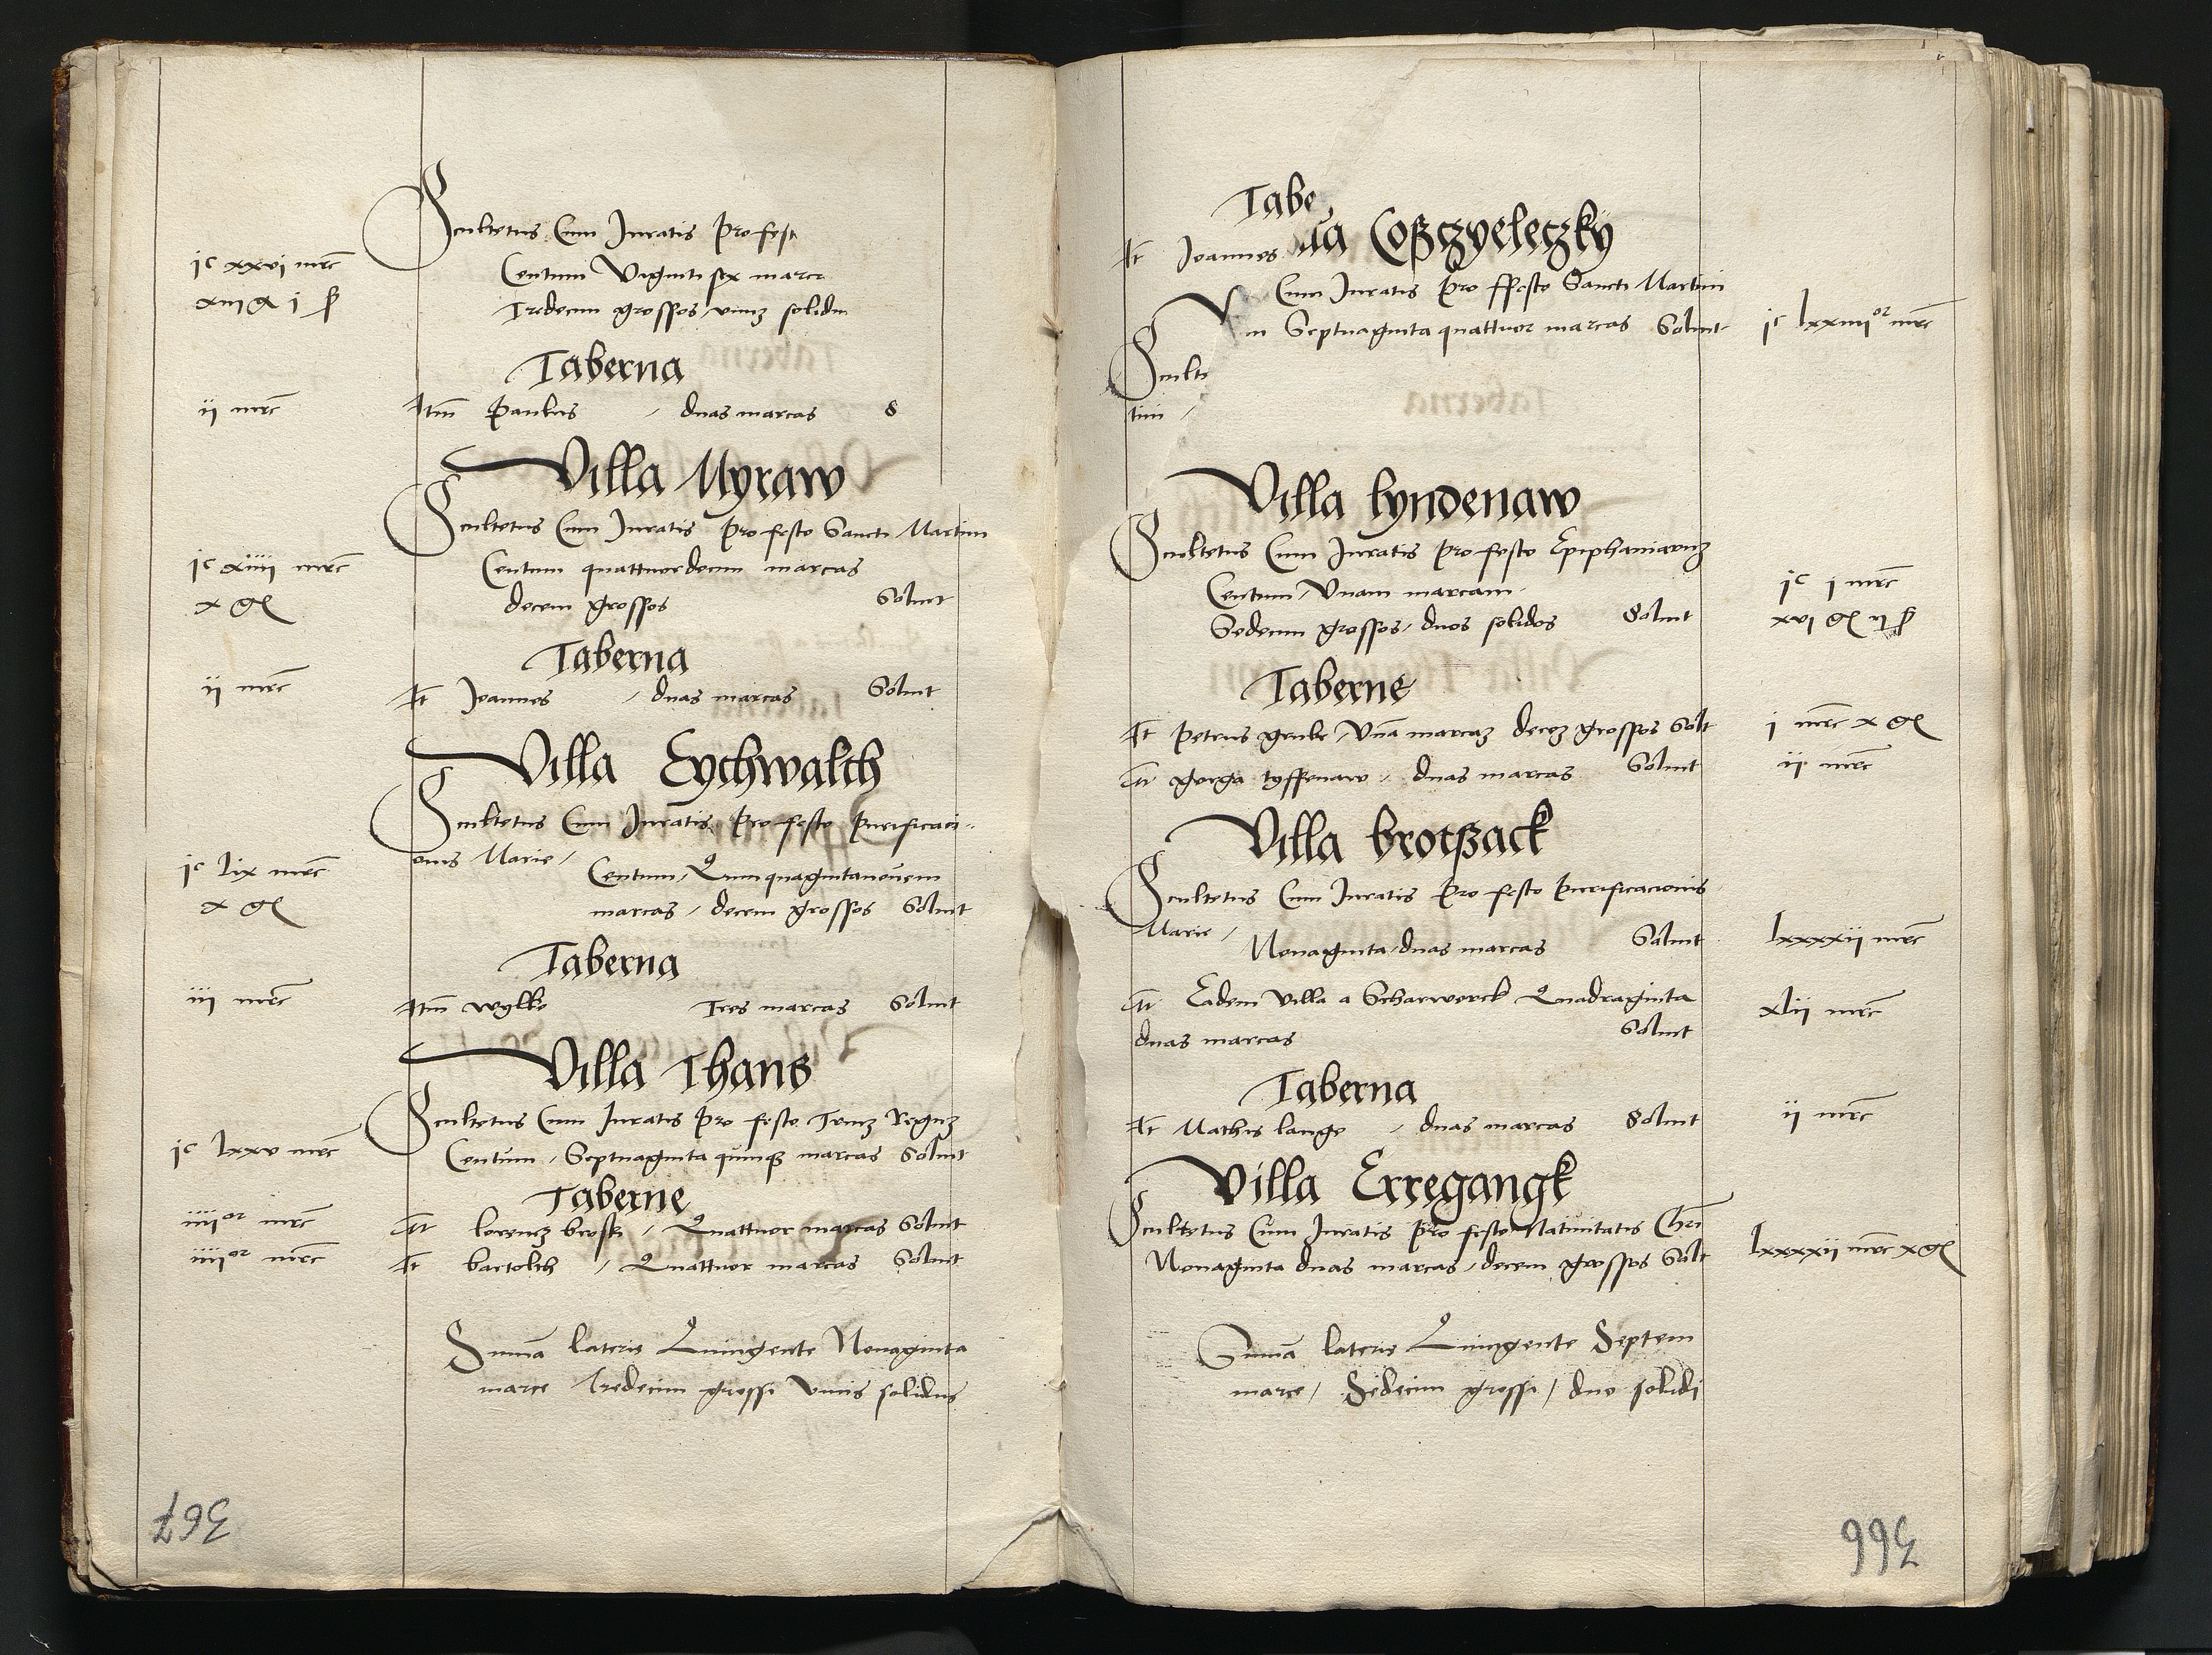 Scultetus Cum Juratis Pro fest
jc xxvj mrc Centum Viginti sex marc
xiij g j ß Tredecim grossos vnuz solidu
Taberna
ij mrc Itm Paulus / duas marcas S
Villa Myraw
Scultetus Cum Juratis Pro festo Sancti Martini
jc xiiij mrc Centum quattuordecim marcas
x gl decem grossos Soluit
Taberna
ij mrc It Joannes / duas marcas Soluit
Villa Eychwalth
Scultetus Cum Juratis Pro festo Purificaci-
onis Marie /
jc lix mrc Centum / Quinquagintanouem
x gl marcas / decem grossos Soluit
Taberna
iij mrc Itm wylke Tres marcas Soluit
Villa Thans
Scultetus Cum Juratis Pro festo Triuz Reguz
jc lxxv mrc Centum / Septuaginta quinqz marcas Soluit
Taberne
iiijor mrc It lorencz brosk / Quattuor marcas Soluit
iiijor mrc It bartolth / Quattuor marcas Soluit
Suma lateris Quingente Nonaginta
marce Tredecim grossi Vnus solidus
367
Tabe
It Joannes
la Coßczyeleczky
Cum Juratis Pro ffesto Sancti Martini
m Septuaginta quattuor marcas Soluit jc lxxiiijor mrc
Sculte
tini /
Villa lyndenaw
Scultetus Cum Juratis Pro festo Epiphaniaruz
Centum / Vnam marcam jc j mrc
Sedecim grossos / duos solidos Soluit xvj gl ij ß
Taberne
It Petrus grube / Vna marcaz decez grossos Solt j mrc x gl
It gorga tyffenaw / duas marcas Soluit ij mrc
Villa brotßack
Scultetus Cum Juratis Pro festo Purificacionis
Marie /
Nonaginta / duas marcas Soluit lxxxxij mrc
It Eadem villa a Scharwerck Quadraginta xlij mrc
duas marcas Soluit
Taberna
It Mathis lange / duas marcas Soluit ij mrc
Villa Erregangk
Scultetus Cum Juratis Pro festo Natiuitatis Chri
Nonaginta duas marcas / decem grossos Solt lxxxxij mrc x gl
Suma lateris Quingente Septem
marce / Sedecim grossi / duo solidi
366